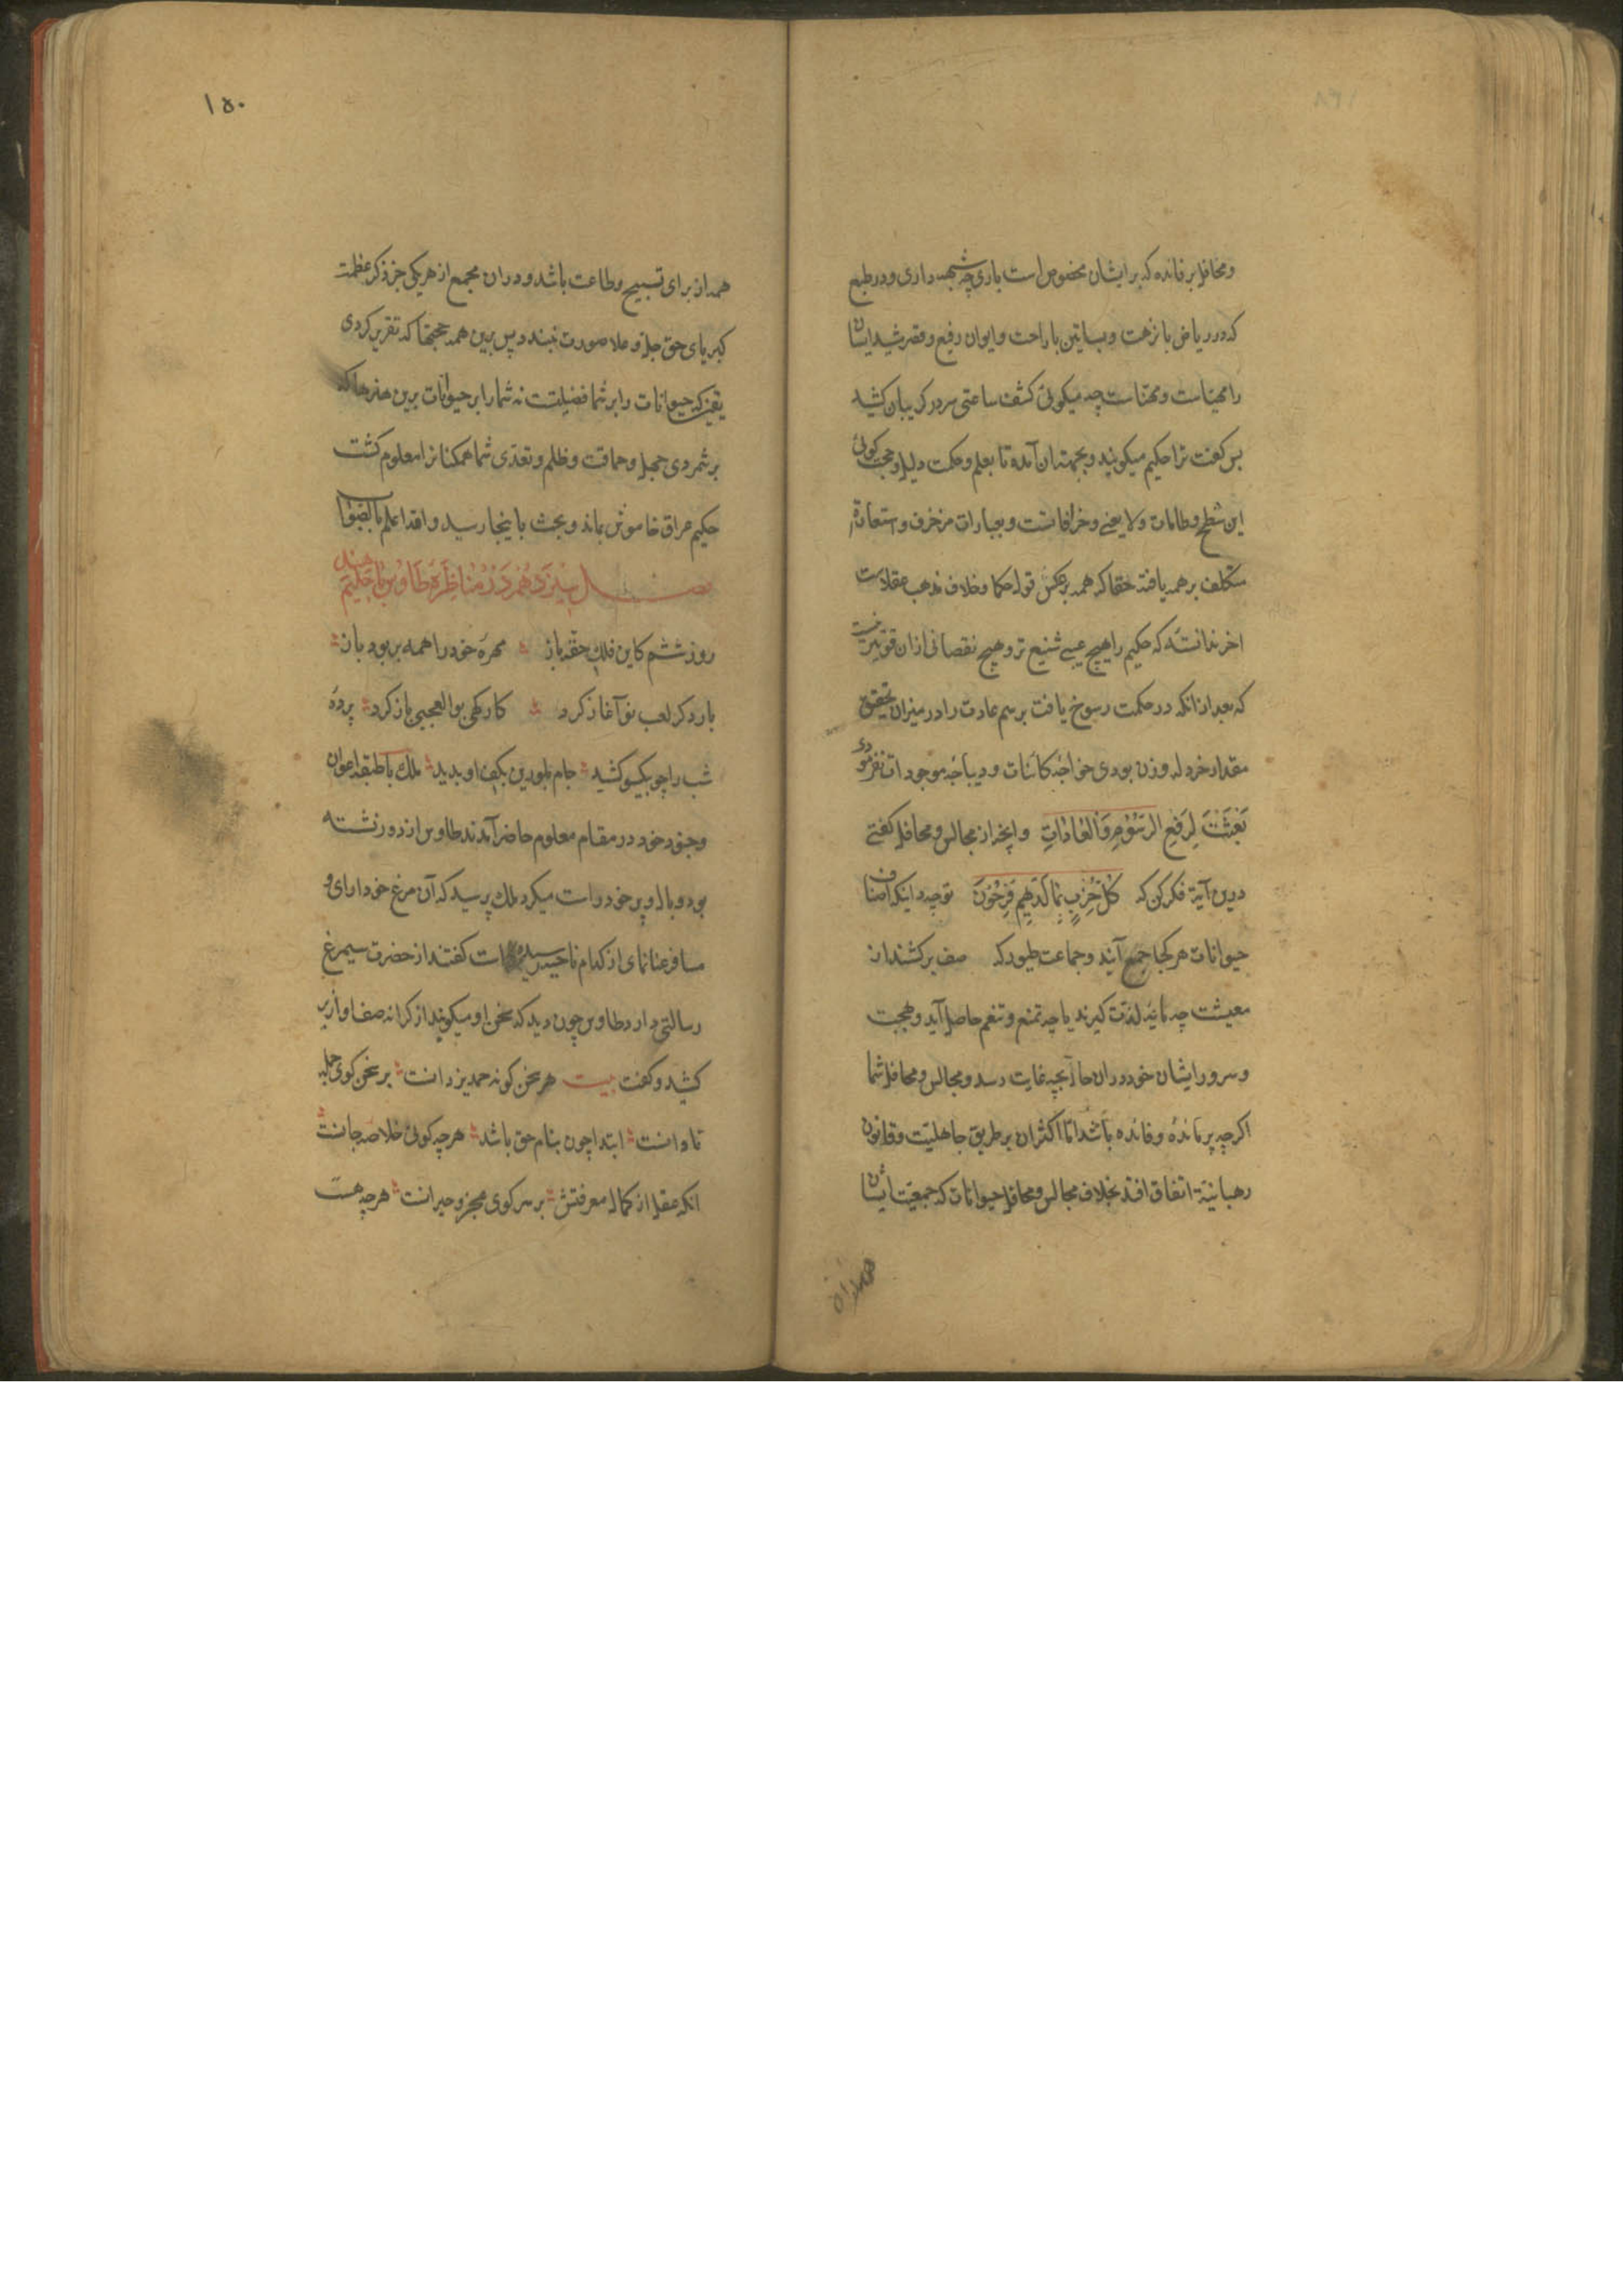 ومحافل برفائده که بر ایشان مخصوص است باری چه شبهه داری ودر طبع
که در ریاض با نزهت وبساتین با راحت وایوان رفیع وقصر مشید ایشان
را مهیاست ومهناست چه میکوئی کشف ساعتی سر در کریبان کشید
پس کفت ترا حکیم میکویند وبجهة ان آمده تا بعلم وحکمت دلیل وحجت کوئی
این شطح وطامات ولا یعنی وخرافاتست وبعبارات مزخرف واستعارة
متکلف بر هم یافته حقا که همه برعکس قول حکما وخلاف مذهب عقلاست
اخر ندانسته که حکیم را هیچ عیبی شنیع تر وهیچ نقصانی ازان قوی‌تر نیست
که بعد از انکه در حکمت رسوخ یافت برسم عادت را در میزان تحقیق
مقدار خردله وزن بودی خواجهٔ کائنات ودیباجهٔ موجودات نفرمودی
بُعِثْتُ لِرَفْعِ الرُّسُوْمِ وَالْعَادَاتِ وانچه از مجالس ومحافل کفتی
درین آیة فکر کن که کُلُّ حِزْبٍ بِمَا لَدَیْهِمْ فَرِحُوْنَ توچه دانی که اصناف
حیوانات هر کجا جمع آیند وجماعت طیور که صف برکشند از
معیشت چه مایه لذت کیرند یا چه تمتع وتنعم حاصل آید وبهجت
وسرور ایشان خود دران حال بچه غایت رسد ومجالس ومحافل شما
اکرچه پر مائده وفائده باشد امّا اکثر ان بر طریق جاهلیّت وقانون
رهبانیّة اتفاق افتد بخلاف مجالس ومحافل حیوانات که جمعیّت ایشان
همه از
۱۵۰
همه از برای تسبیح وطاعت باشد ودران مجمع از هر یکی جز ذکر عظمت
کبریای حق جل وعلا صورت نبندد پس برین همه حجتها که تقریر کردی
یقین که حیوانات را بر شما فضیلتست نه شما را بر حیوانات برین هنرها که
برشمردی جهل وحماقت وظلم وتعدّی شما همکنانرا معلوم کشت
حکیم عراق خاموش بماند وبحث باینجا رسید والله اعلم بالصّواب
فصل سیزدهم در مناظرهٔ طاوس با حکیم هند
روز ششم کاین فلک حقه باز مهرهٔ خود را همه بربود باز
بار دکر لعب نو آغاز کرد کارکهی بوالعجبی باز کرد پردهٔ
شب را چو بیکسو کشید جام بلورین بکف او بدید ملک با طبقه اعوان
وجنود خود در مقام معلوم حاضر آمدند طاوس از دور نشسته
بود وبال وپر خود راست میکرد ملک پرسید که آن مرغ خود ارای و
مسافر عنانمای از کدام ناحیه رسیده است کفتند از حضرت سیمرغ
رسالتی دارد طاوس چون دید که سخن او میکویند از کرانه صف اوازبر
کشید وکفت بیت هر سخن کو نه حمد یزدانست بر سخن کوی جمله
تاوانست ابتدا چون بنام حق باشد هرچه کوئی خلاصه جانست
انکه عقل از کمال معرفتش بر سر کوی عجز وحیرانست هرچه هست